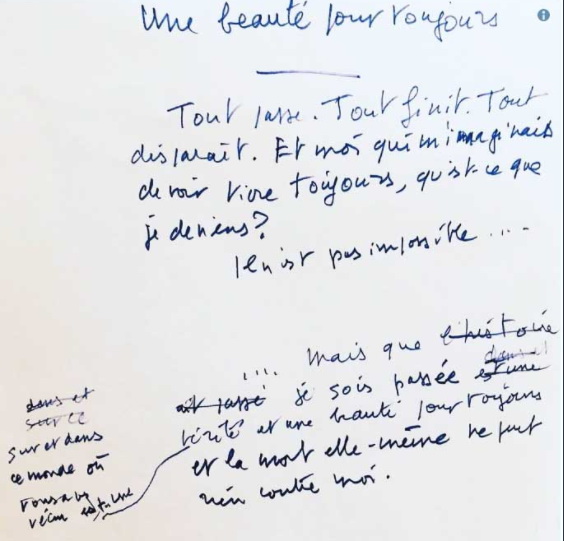 Une beauté pour toujours
Tout passe. Tout finit. Tout
disparaît. Et moi qui m'imaginais
devoir vivre toujours, qu'est-ce que
je deviens?
Il n'est pas impossible ....
.... mais que l'histoire
ait passé je sois passée dans et
est une
vérité et une beauté pour toujours
et la mort elle-même ne peut
rien contre moi.
dans et
sur ce
sur et dans
ce monde où
vous avez
vécu est une